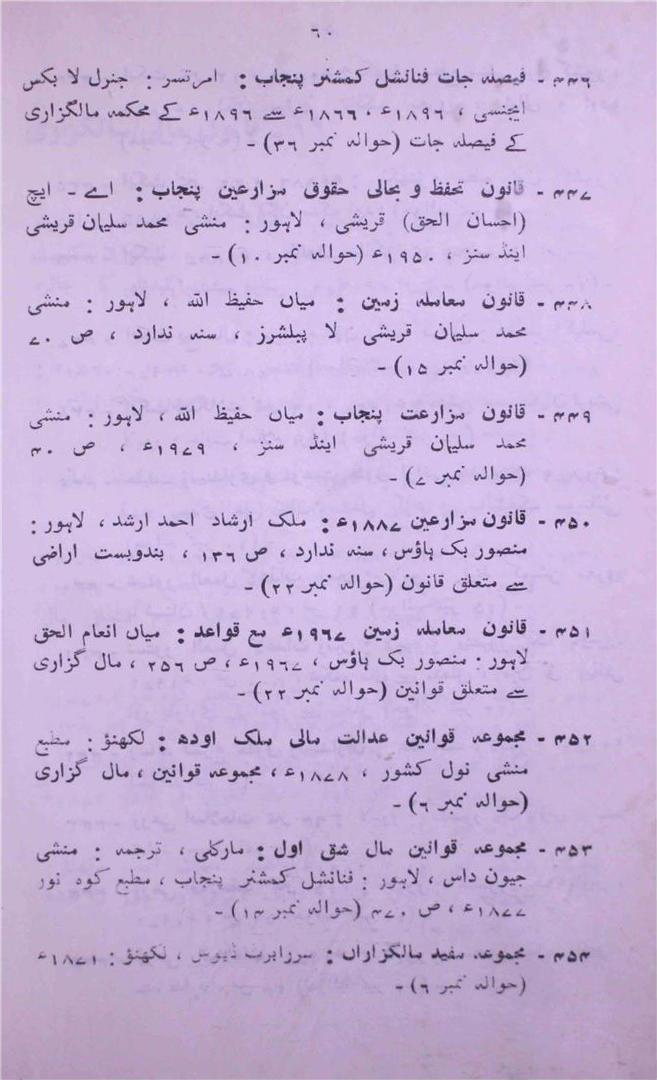 ۶۰
۴۴۶ - فیصلہ جات فنانشل کمشنر پنجاب : امرتسر : جنرل لا بکس
ایجنسی ، ۱۸۹۶ء ، ۱۸۶۶ء سے ۱۸۹۶ء کے محکمہ مالگزاری
کے فیصلہ جات (حوالہ نمبر ۳۶) -
۴۴۷ - قانون تحفظ و بحالی حقوق مزارعین پنجاب : اے - ایچ
(احسان الحق) قریشی ، لاہور : منشی محمد سلیمان قریشی
اینڈ سنز ، ۱۹۵۰ء (حوالہ نمبر ۱۰) -
۴۴۸ - قانون معاملہ زمین : میاں حفیظ اللہ ، لاہور : منشی
محمد سلیمان قریشی لا پبلشرز ، سنہ ندارد ، ص ۷۰
(حوالہ نمبر ۱۵) -
۴۴۹ - قانون مزارعت پنجاب : میاں حفیظ اللہ ، لاہور : منشی
محمد سلیمان قریشی اینڈ سنز ، ۱۹۷۹ء ، ص ۴۰
(حوالہ نمبر ۷) -
۴۵۰ - قانون مزارعین ۱۸۸۷ء : ملک ارشاد احمد ارشد ، لاہور :
منصور بک ہاؤس ، سنہ ندارد ، ص ۱۳۶ ، بندوبست اراضی
سے متعلق قانون (حوالہ نمبر ۲۲) -
۴۵۱ - قانون معاملہ زمین ۱۹۶۷ء مع قواعد : میاں انعام الحق
لاہور : منصور بک ہاؤس ، ۱۹۶۷ء ، ص ۲۵۶ ، مال گزاری
سے متعلق قوانین (حوالہ نمبر ۲۲) -
۴۵۲ - مجموعہ قوانین عدالت مالی ملک اودھ : لکھنؤ : مطبع
منشی نول کشور ، ۱۸۷۸ء ، مجموعہ قوانین ، مال گزاری
(حوالہ نمبر ۶) -
۴۵۳ - مجموعہ قوانین مال شق اول : مارکلی ، ترجمہ : منشی
جیون داس ، لاہور : فنانشل کمشنر پنجاب ، مطبع کوہ نور
۱۸۷۷ء ، ص ۴۷۰ (حوالہ نمبر ۱۴) -
۴۵۴ - مجموعہ مفید مالگزاراں : سررابرٹ ڈیوس ، لکھنؤ : ۱۸۷۱ء
(حوالہ نمبر ۶) -